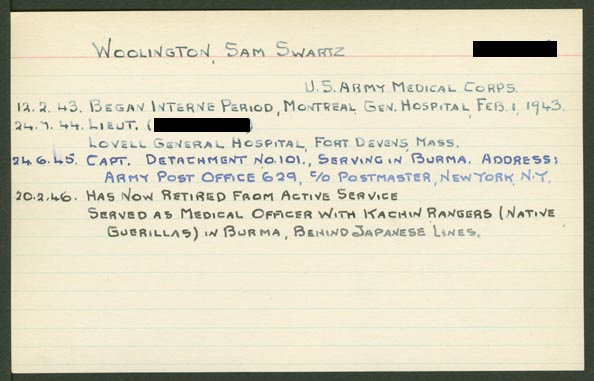 WOOLINGTON, SAM SWARTZ
U.S. ARMY MEDICAL CORPS.
12.2.43. BEGAN INTERNE PERIOD, MONTREAL GEN. HOSPITAL, FEB. 1, 1943.
24.7.44. LIEUT. ( )
LOVELL GENERAL HOSPITAL, FORT DEVENS, MASS.
24.6.45. CAPT. DETACHMENT NO. 101., SERVING IN BURMA. ADDRESS:
ARMY POST OFFICE 629, C/O POSTMASTER, NEW YORK, N.Y.
20.2.46. HAS NOW RETIRED FROM ACTIVE SERVICE
SERVED AS MEDICAL OFFICER WITH KACHIN RANGERS (NATIVE
GUERILLAS) IN BURMA, BEHIND JAPANESE LINES.